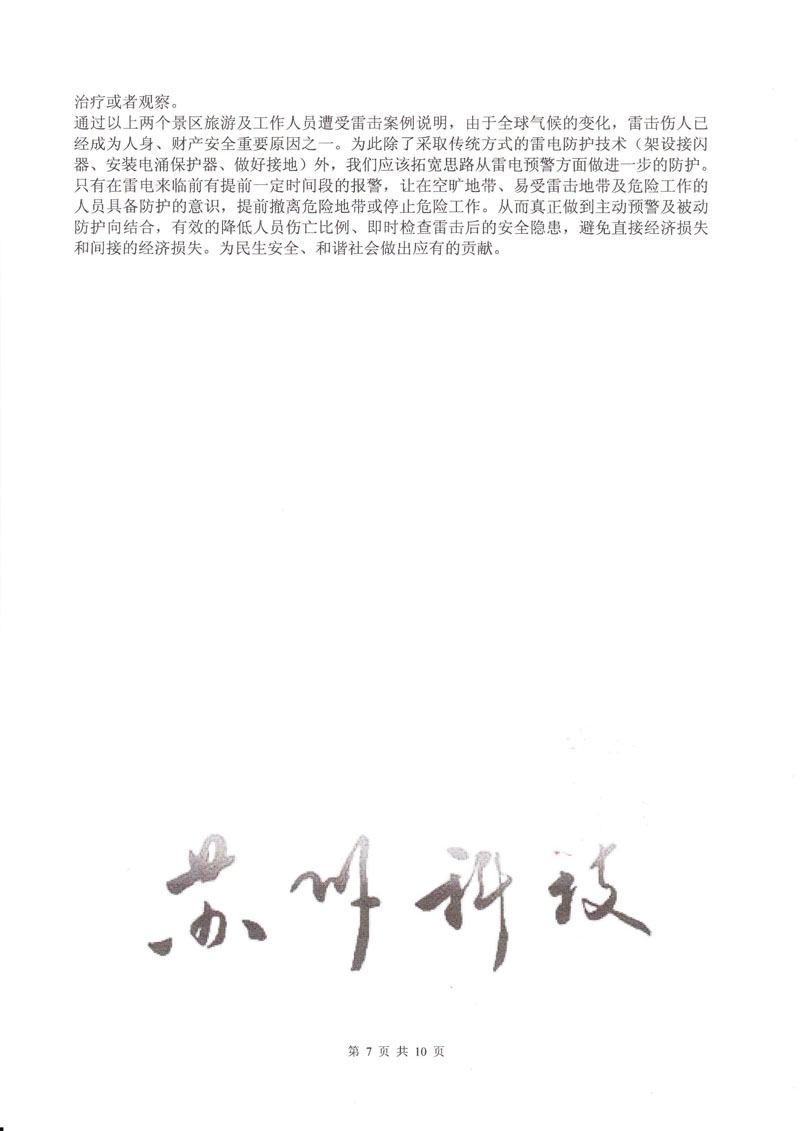 治疗或者观察。
通过以上两个景区旅游及工作人员遭受雷击案例说明，由于全球气候的变化，雷击伤人已
经成为人身、财产安全重要原因之一。为此除了采取传统方式的雷电防护技术（架设接闪
器、安装电涌保护器、做好接地）外，我们应该拓宽思路从雷电预警方面做进一步的防护。
只有在雷电来临前有提前一定时间段的报警，让在空旷地带、易受雷击地带及危险工作的
人员具备防护的意识，提前撤离危险地带或停止危险工作。从而真正做到主动预警及被动
防护向结合，有效的降低人员伤亡比例、即时检查雷击后的安全隐患，避免直接经济损失
和间接的经济损失。为民生安全、和谐社会做出应有的贡献。
苏州科技
第 7 页 共 10 页